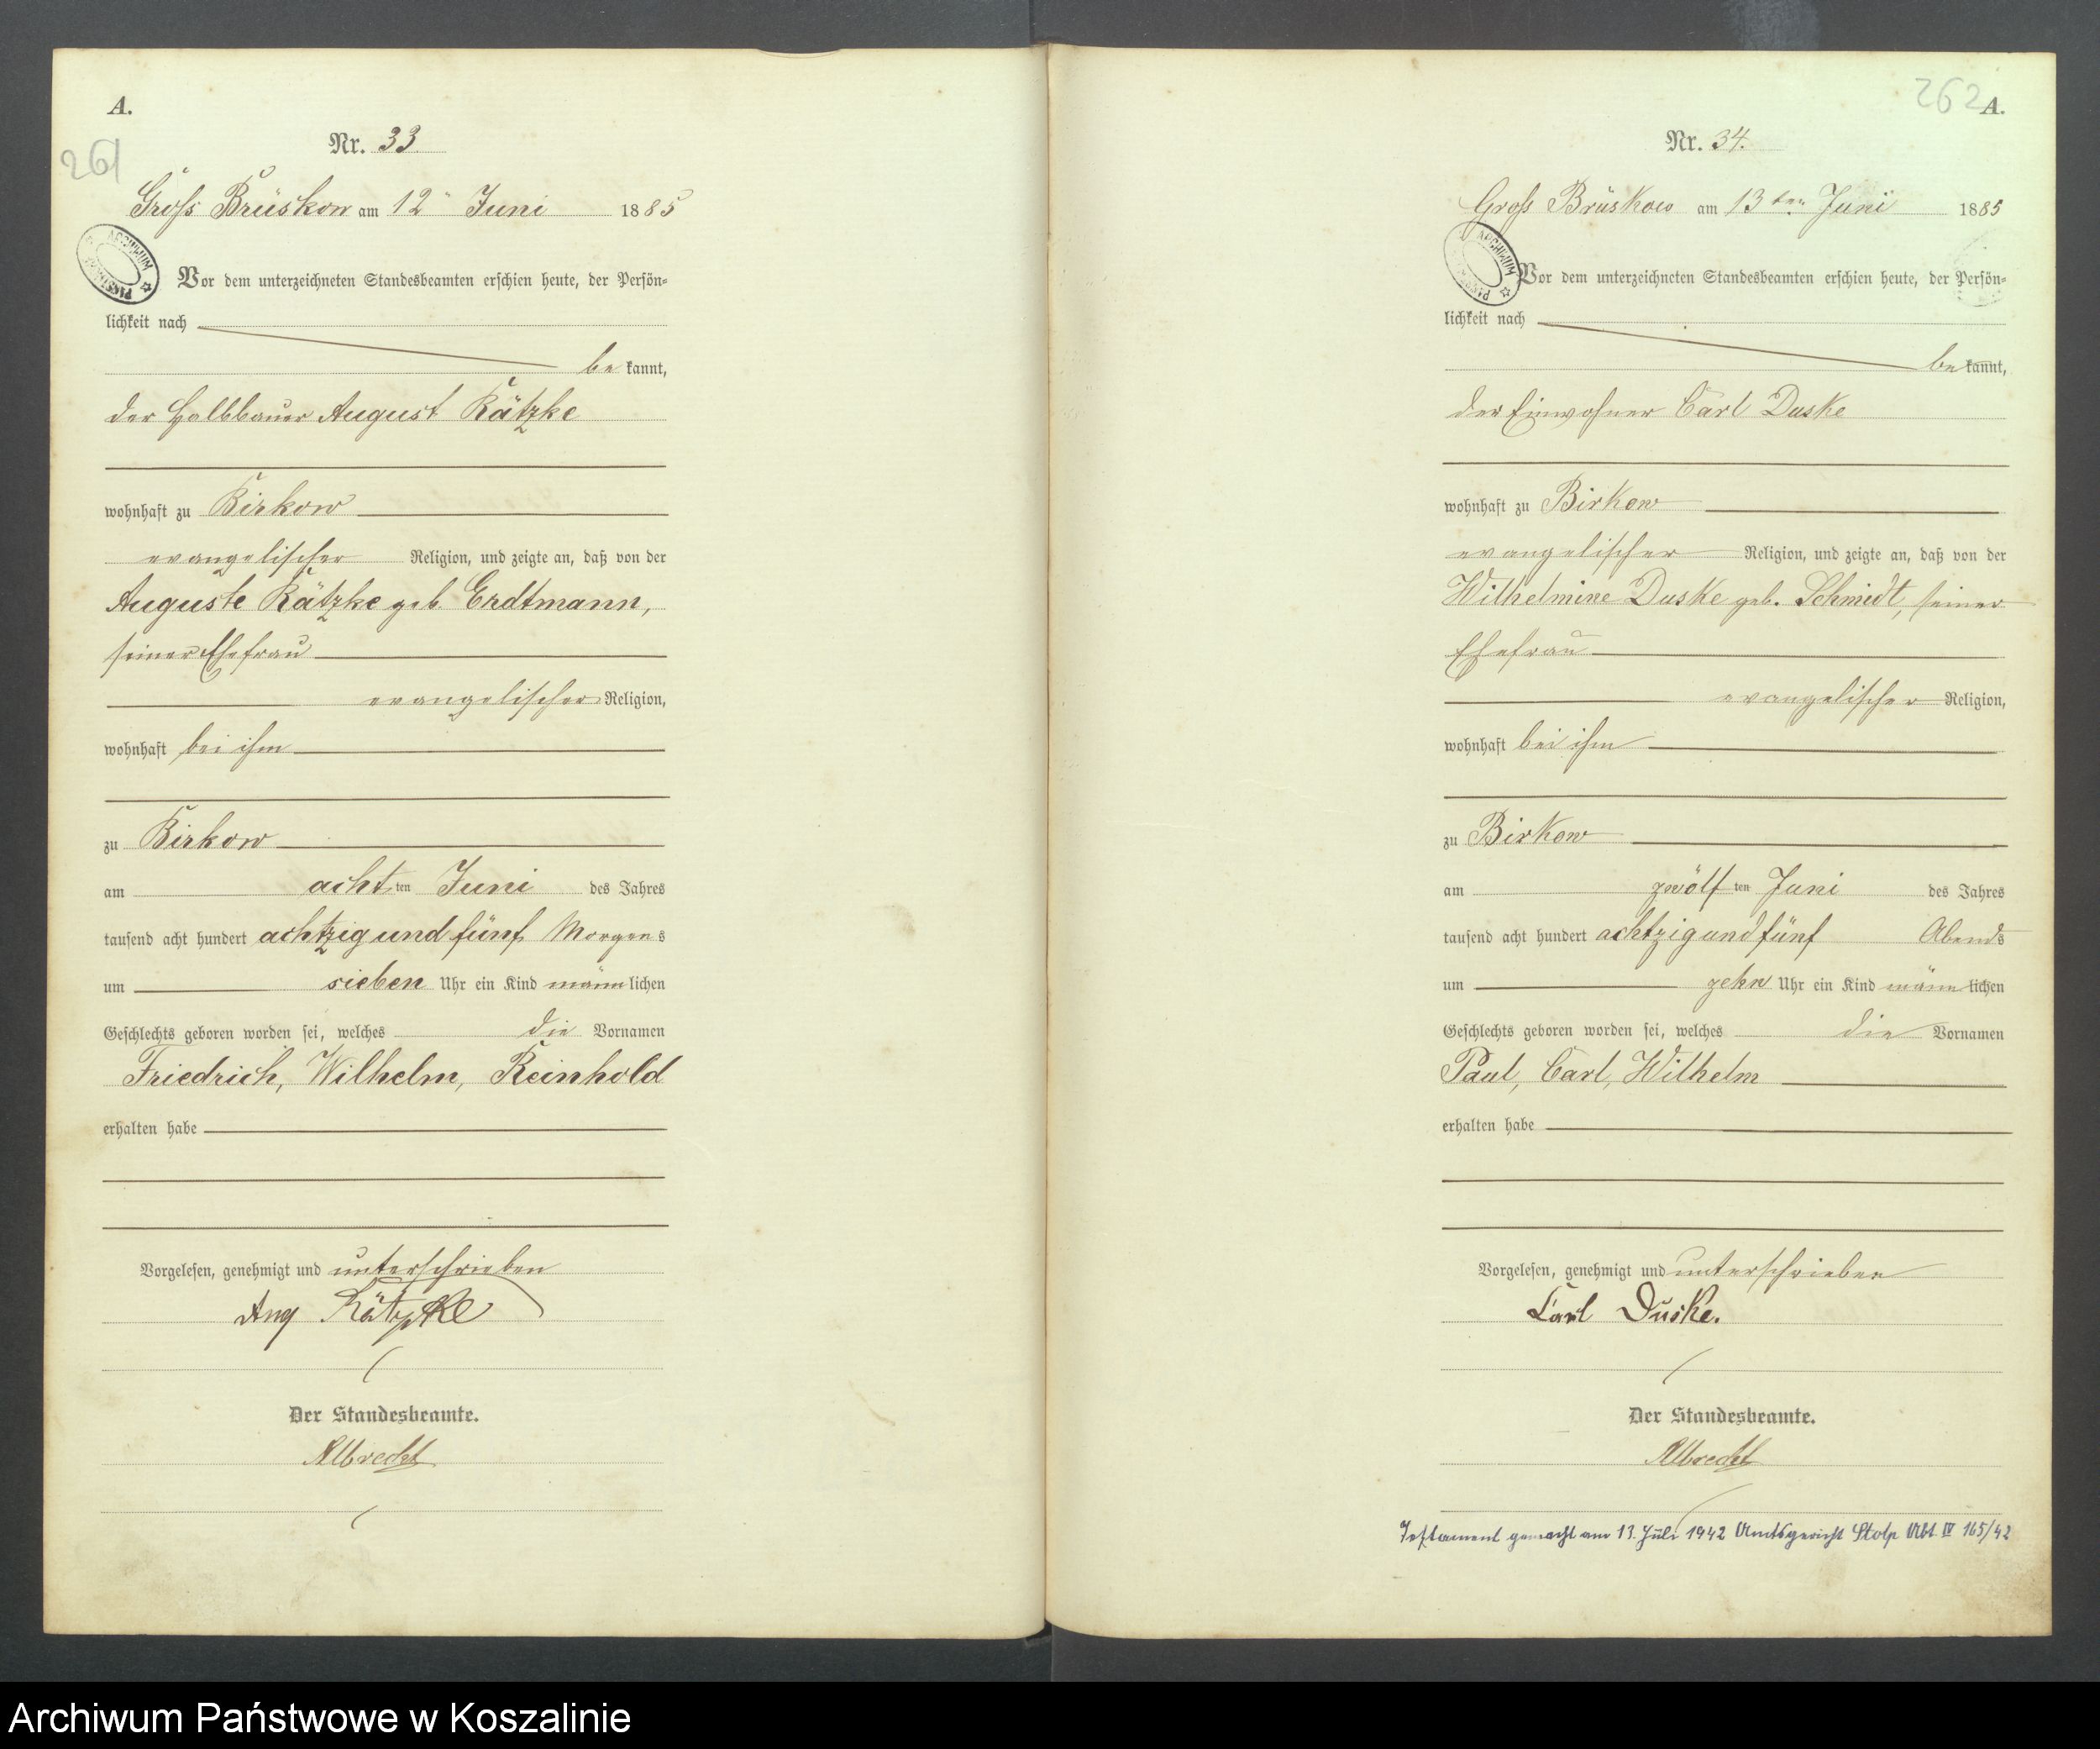 A.
261
Nr. 33
Gross Brüskow am 12ten Juni 1885
Vor dem unterzeichneten Standesbeamten erschien heute, der Persön-
lichkeit nach
be kannt,
der Halbbauer August Kätzke
wohnhaft zu Birkow
evangelischer Religion, und zeigte an, daß von der
Auguste Kätzke geb. Erdtmann,
seiner Ehefrau
evangelischer Religion,
wohnhaft bei ihm
zu Birkow
am acht ten Juni des Jahres
tausend acht hundert achtzig und fünf Morgens
um sieben Uhr ein Kind männlichen
Geschlechts geboren worden sei, welches die Vornamen
Friedrich, Wilhelm, Reinhold
erhalten habe
Vorgelesen, genehmigt und unterschrieben
Aug Kätzke
Der Standesbeamte.
Albrecht
262
A.
Nr. 34.
Gross Brüskow am 13ten Juni 1885
Vor dem unterzeichneten Standesbeamten erschien heute, der Persön-
lichkeit nach
be kannt,
der Einwohner Carl Duske
wohnhaft zu Birkow
evangelischer Religion, und zeigte an, daß von der
Wilhelmine Duske geb. Schmidt, seiner
Ehefrau
evangelischer Religion,
wohnhaft bei ihm
zu Birkow
am zwölf ten Juni des Jahres
tausend acht hundert achtzig und fünf Abends
um zehn Uhr ein Kind männlichen
Geschlechts geboren worden sei, welches die Vornamen
Paul, Carl, Wilhelm
erhalten habe
Vorgelesen, genehmigt und unterschrieben
Carl Duske.
Der Standesbeamte.
Albrecht
Testament gemacht am 13. Juli 1942 Amtsgericht Stolp Abt. IV 165/42
Archiwum Państwowe w Koszalinie